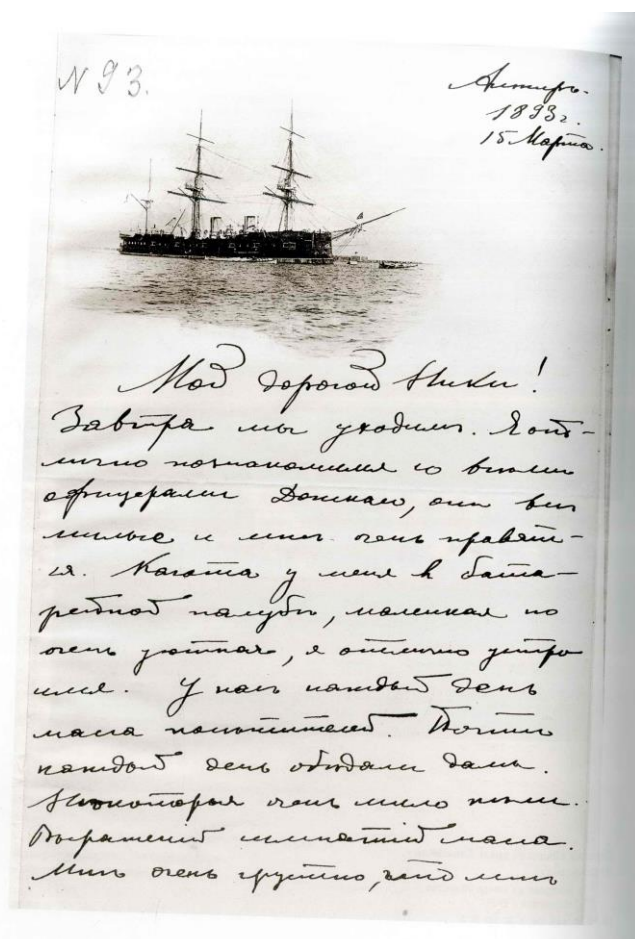 N 93.
Алжиръ.
1893 г.
15 Марта.
Мой дорогой Ники!
Завтра мы уходимъ. Я от-
лично познакомился со всѣми
офицерами Донскаго, они всѣ
милые и мнѣ очень нравят-
ся. Каюта у меня в бата-
рейной палубѣ, маленькая но
очень уютная, я отлично устро
ился. У насъ каждый день
масса посѣтителей. Почти
каждый день обѣдали дамы.
Нѣкоторыя очень мило пѣли.
Выраженій симпатій масса.
Мнѣ очень грустно, что мнѣ